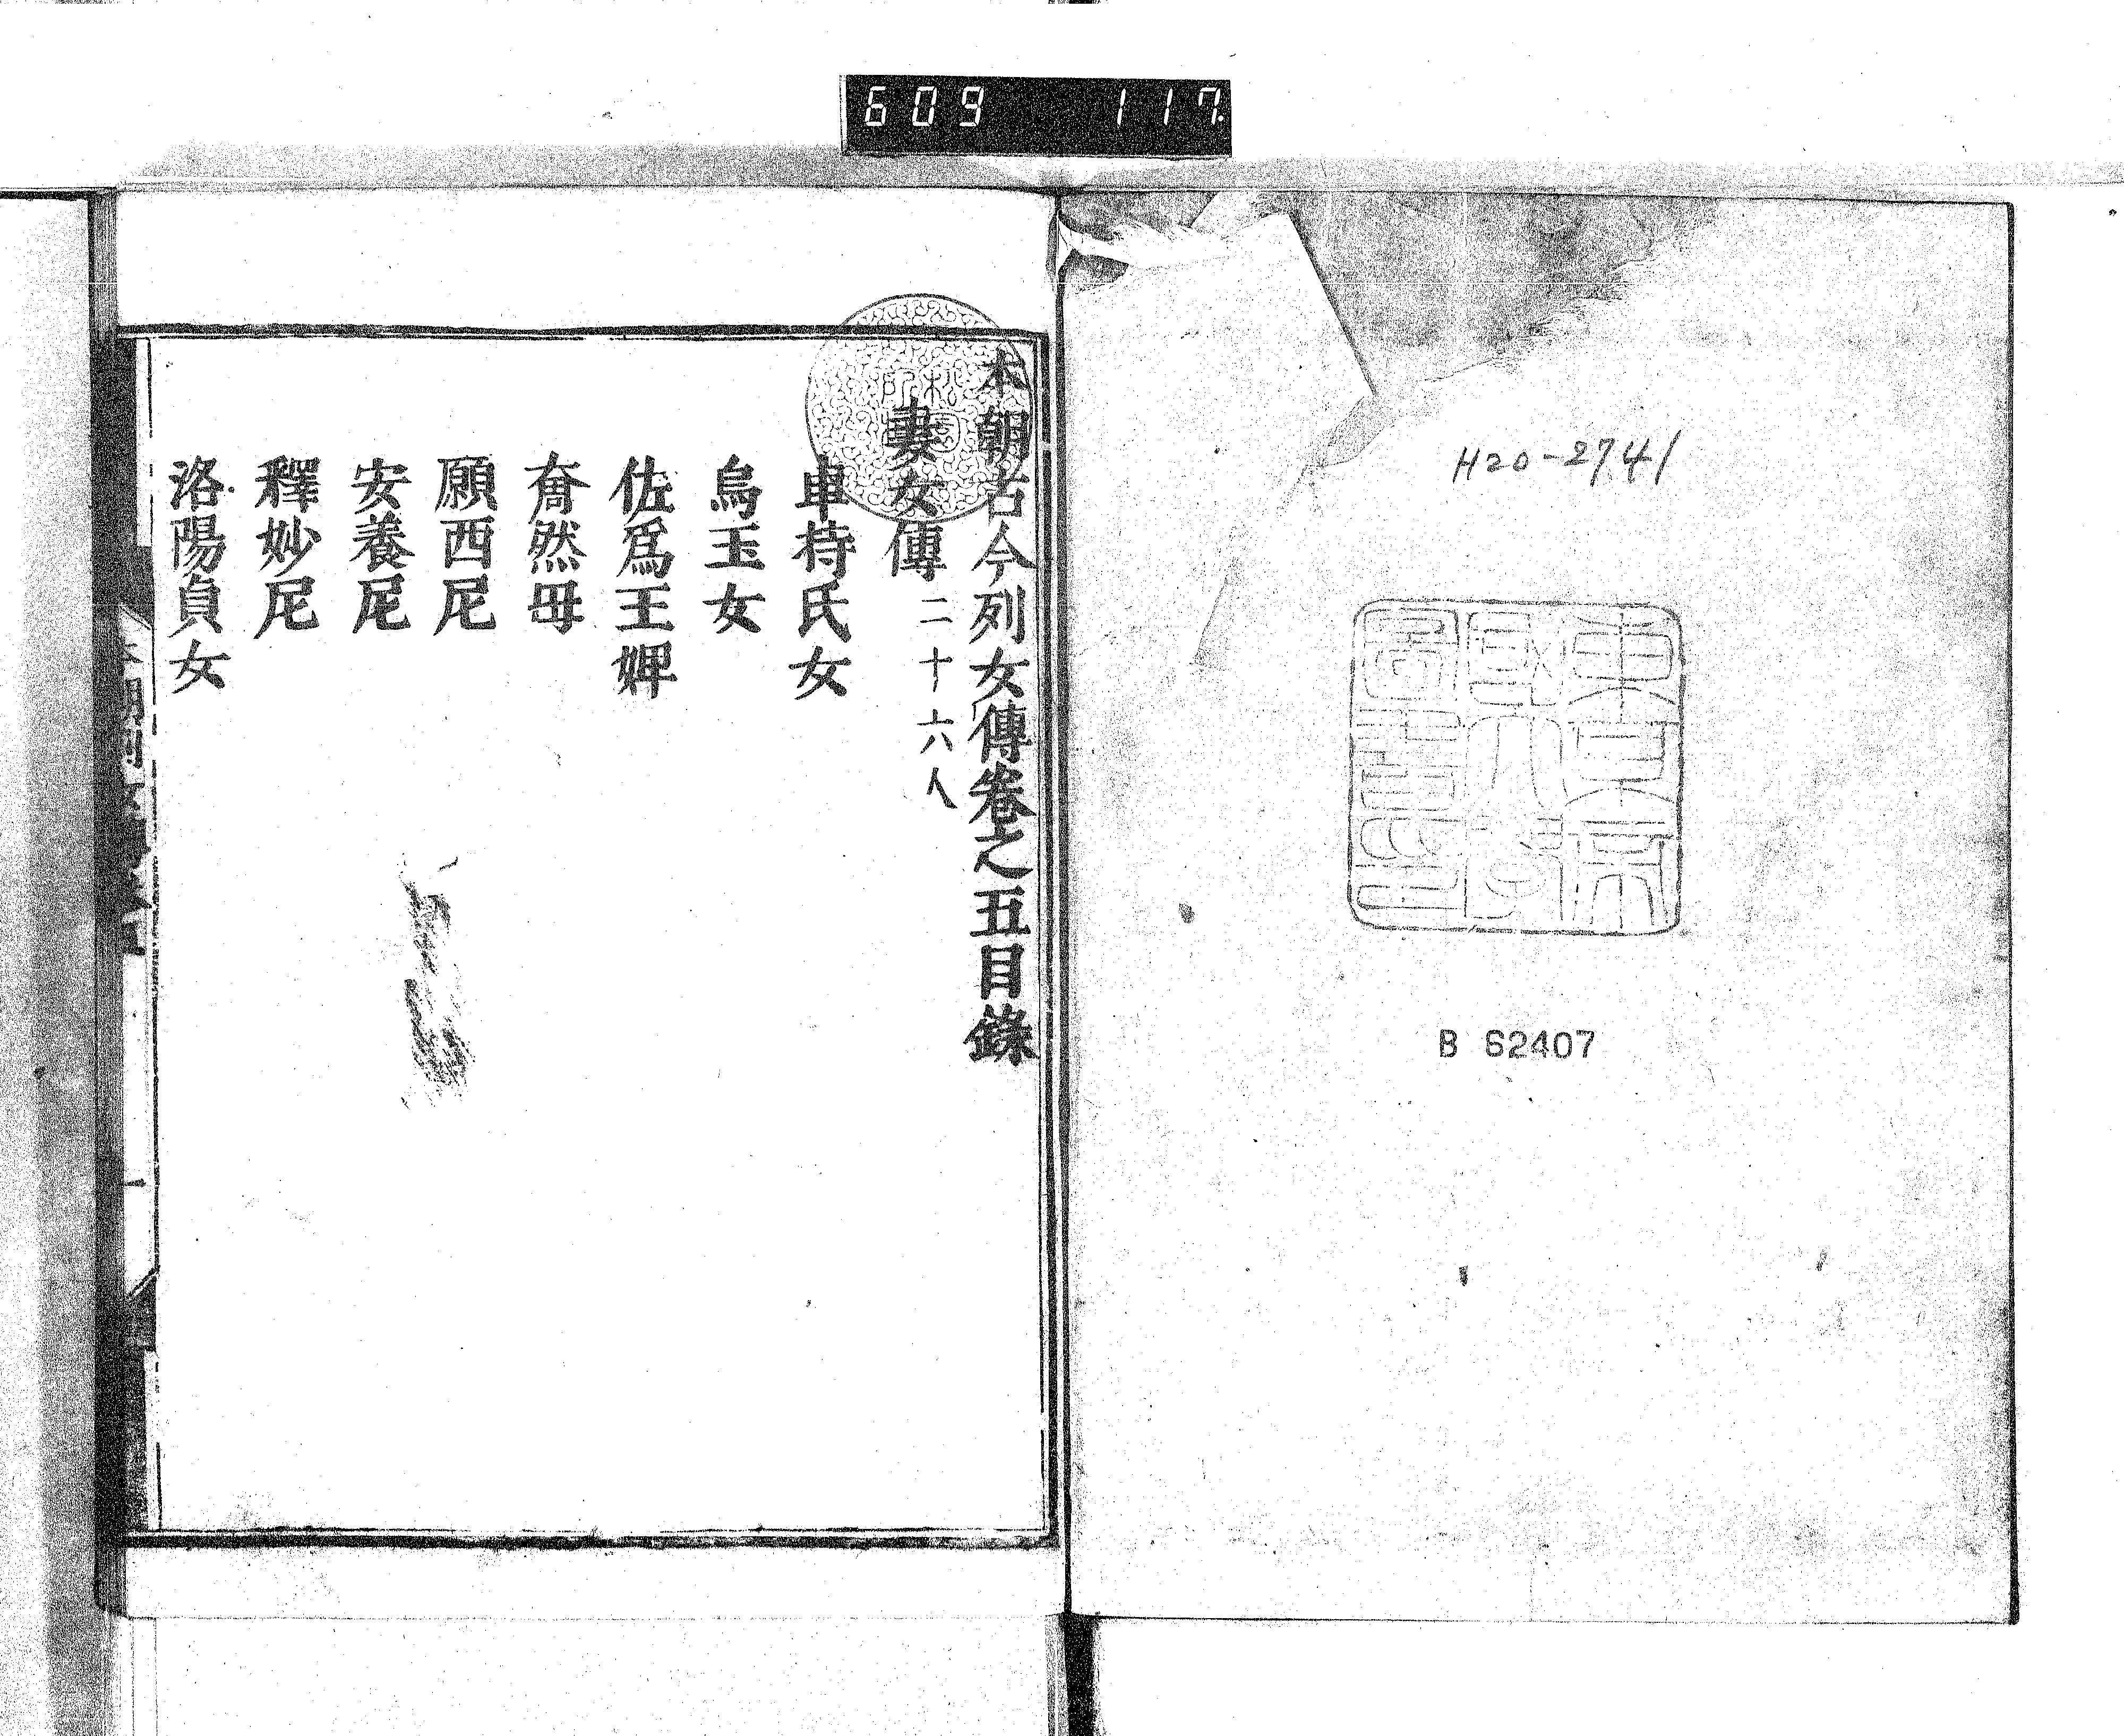 609 117
H20-2741
東京
B 62407
本朝古今列女傳卷之五目錄
妻女傳二十六人
車持氏女
烏玉女
佐爲王婢
奝然母
願西尼
安養尼
釋妙尼
洛陽貞女
一